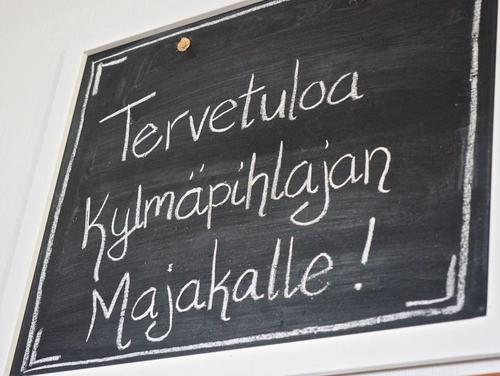 Tervetuloa
Kylmäpihlajan
Majakalle!